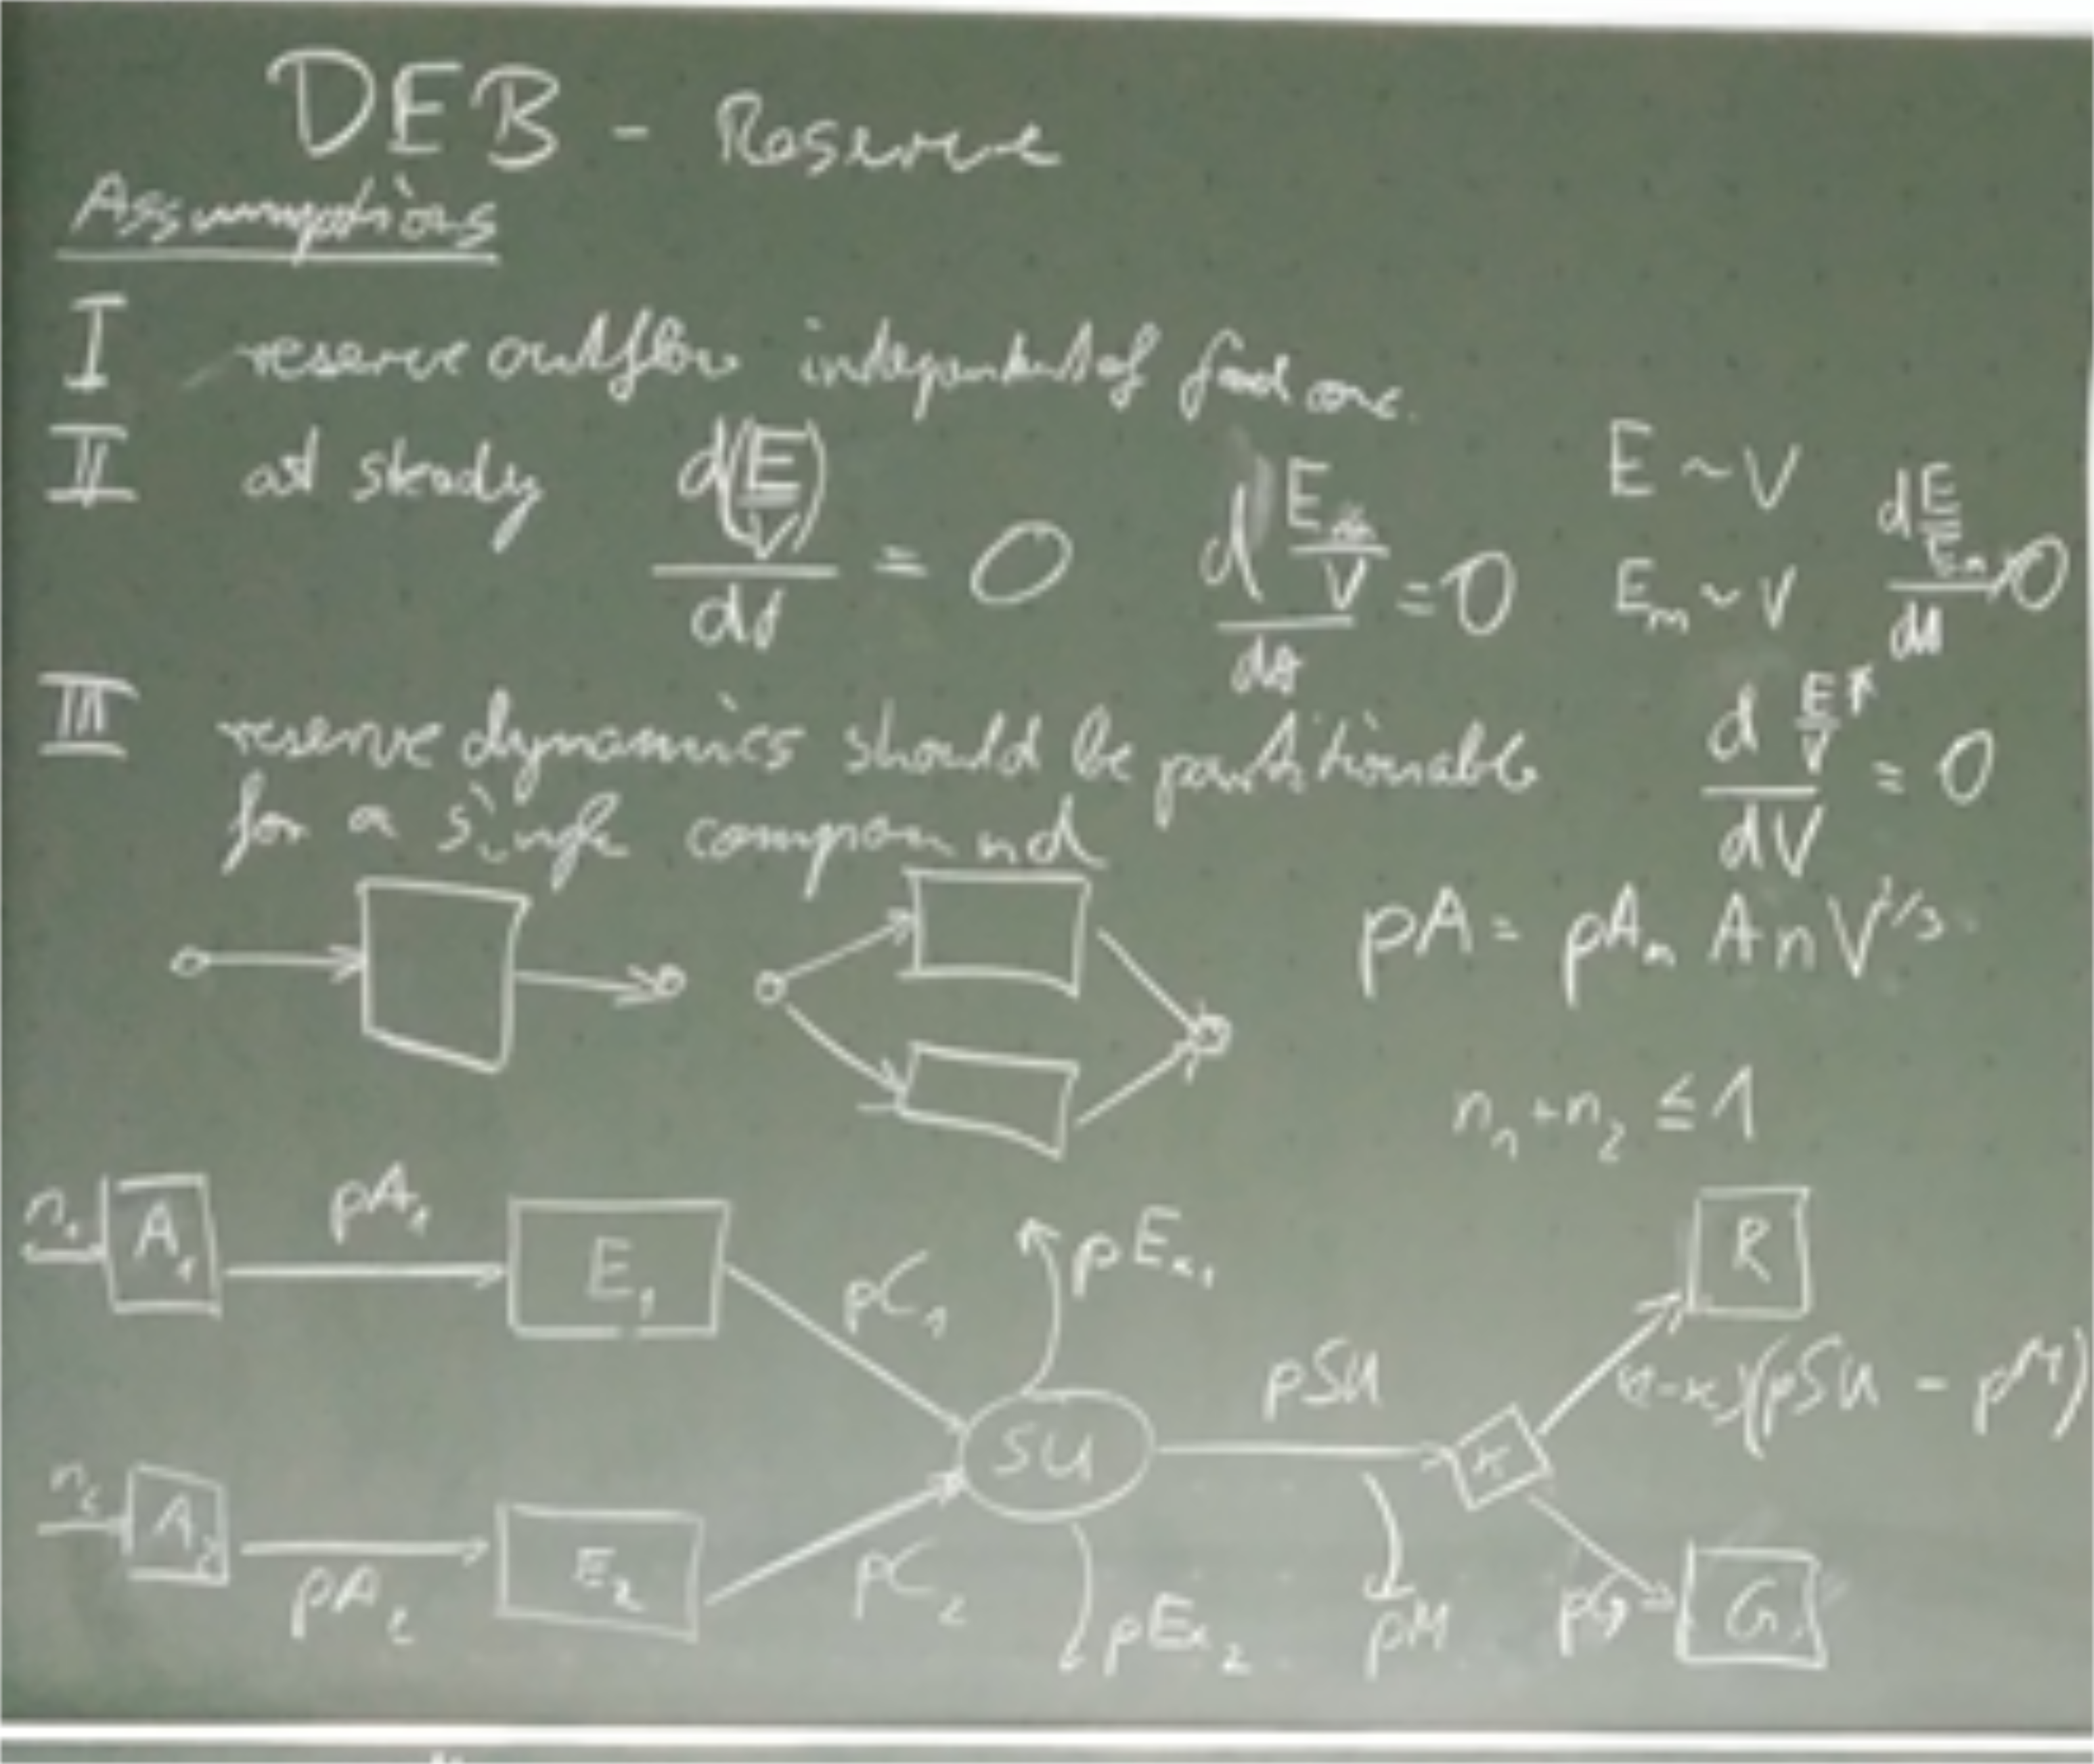 DEB - Reserve
Assumptions
I reserve outflow independent of food conc.
II at steady d(E/V)/dt = 0 d E_m/V /dt = 0 E ~ V
E_m ~ V
III reserve dynamics should be partitionable
for a single compound
d E*/V /dV = 0
pA = pA_m A n V^2/3
n_1 + n_2 ≤ 1
n_1 A_1 pA_1 E_1 pC_1 pE_x1 R
SU pSU κ (1-κ)(pSU - pM)
n_2 A_2 pA_2 E_2 pC_2 pE_x2 pM pG G